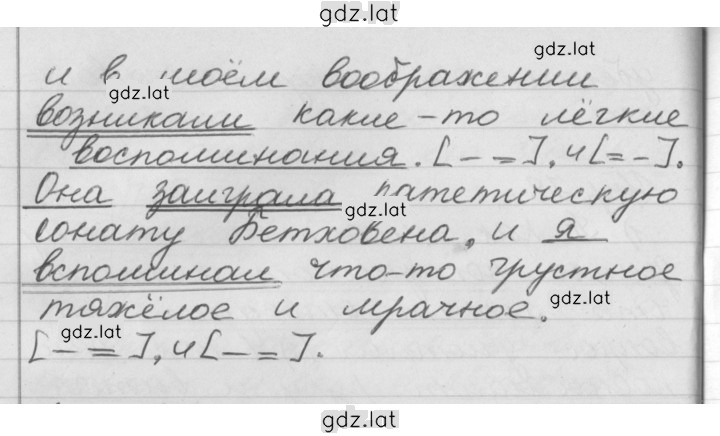 gdz.lat
и в моём воображении
gdz.lat
gdz.lat
возникали какие-то лёгкие
воспоминания. [- =], и [= -].
Она заиграла патетическую
gdz.lat
сонату Бетховена, и я
вспоминал что-то грустное
тяжёлое и мрачное.
gdz.lat
gdz.lat
[- =], и [- =].
gdz.lat